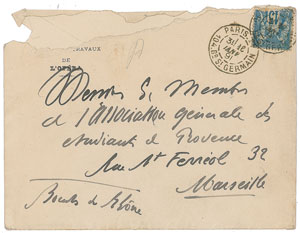 TRAVAUX
DE
L'OPÉRA
PARIS
104. Bd ST GERMAIN
Messrs
l'Association générale des
étudiants de Provence
Rue St Ferréol 32
Marseille
Bouches du Rhône